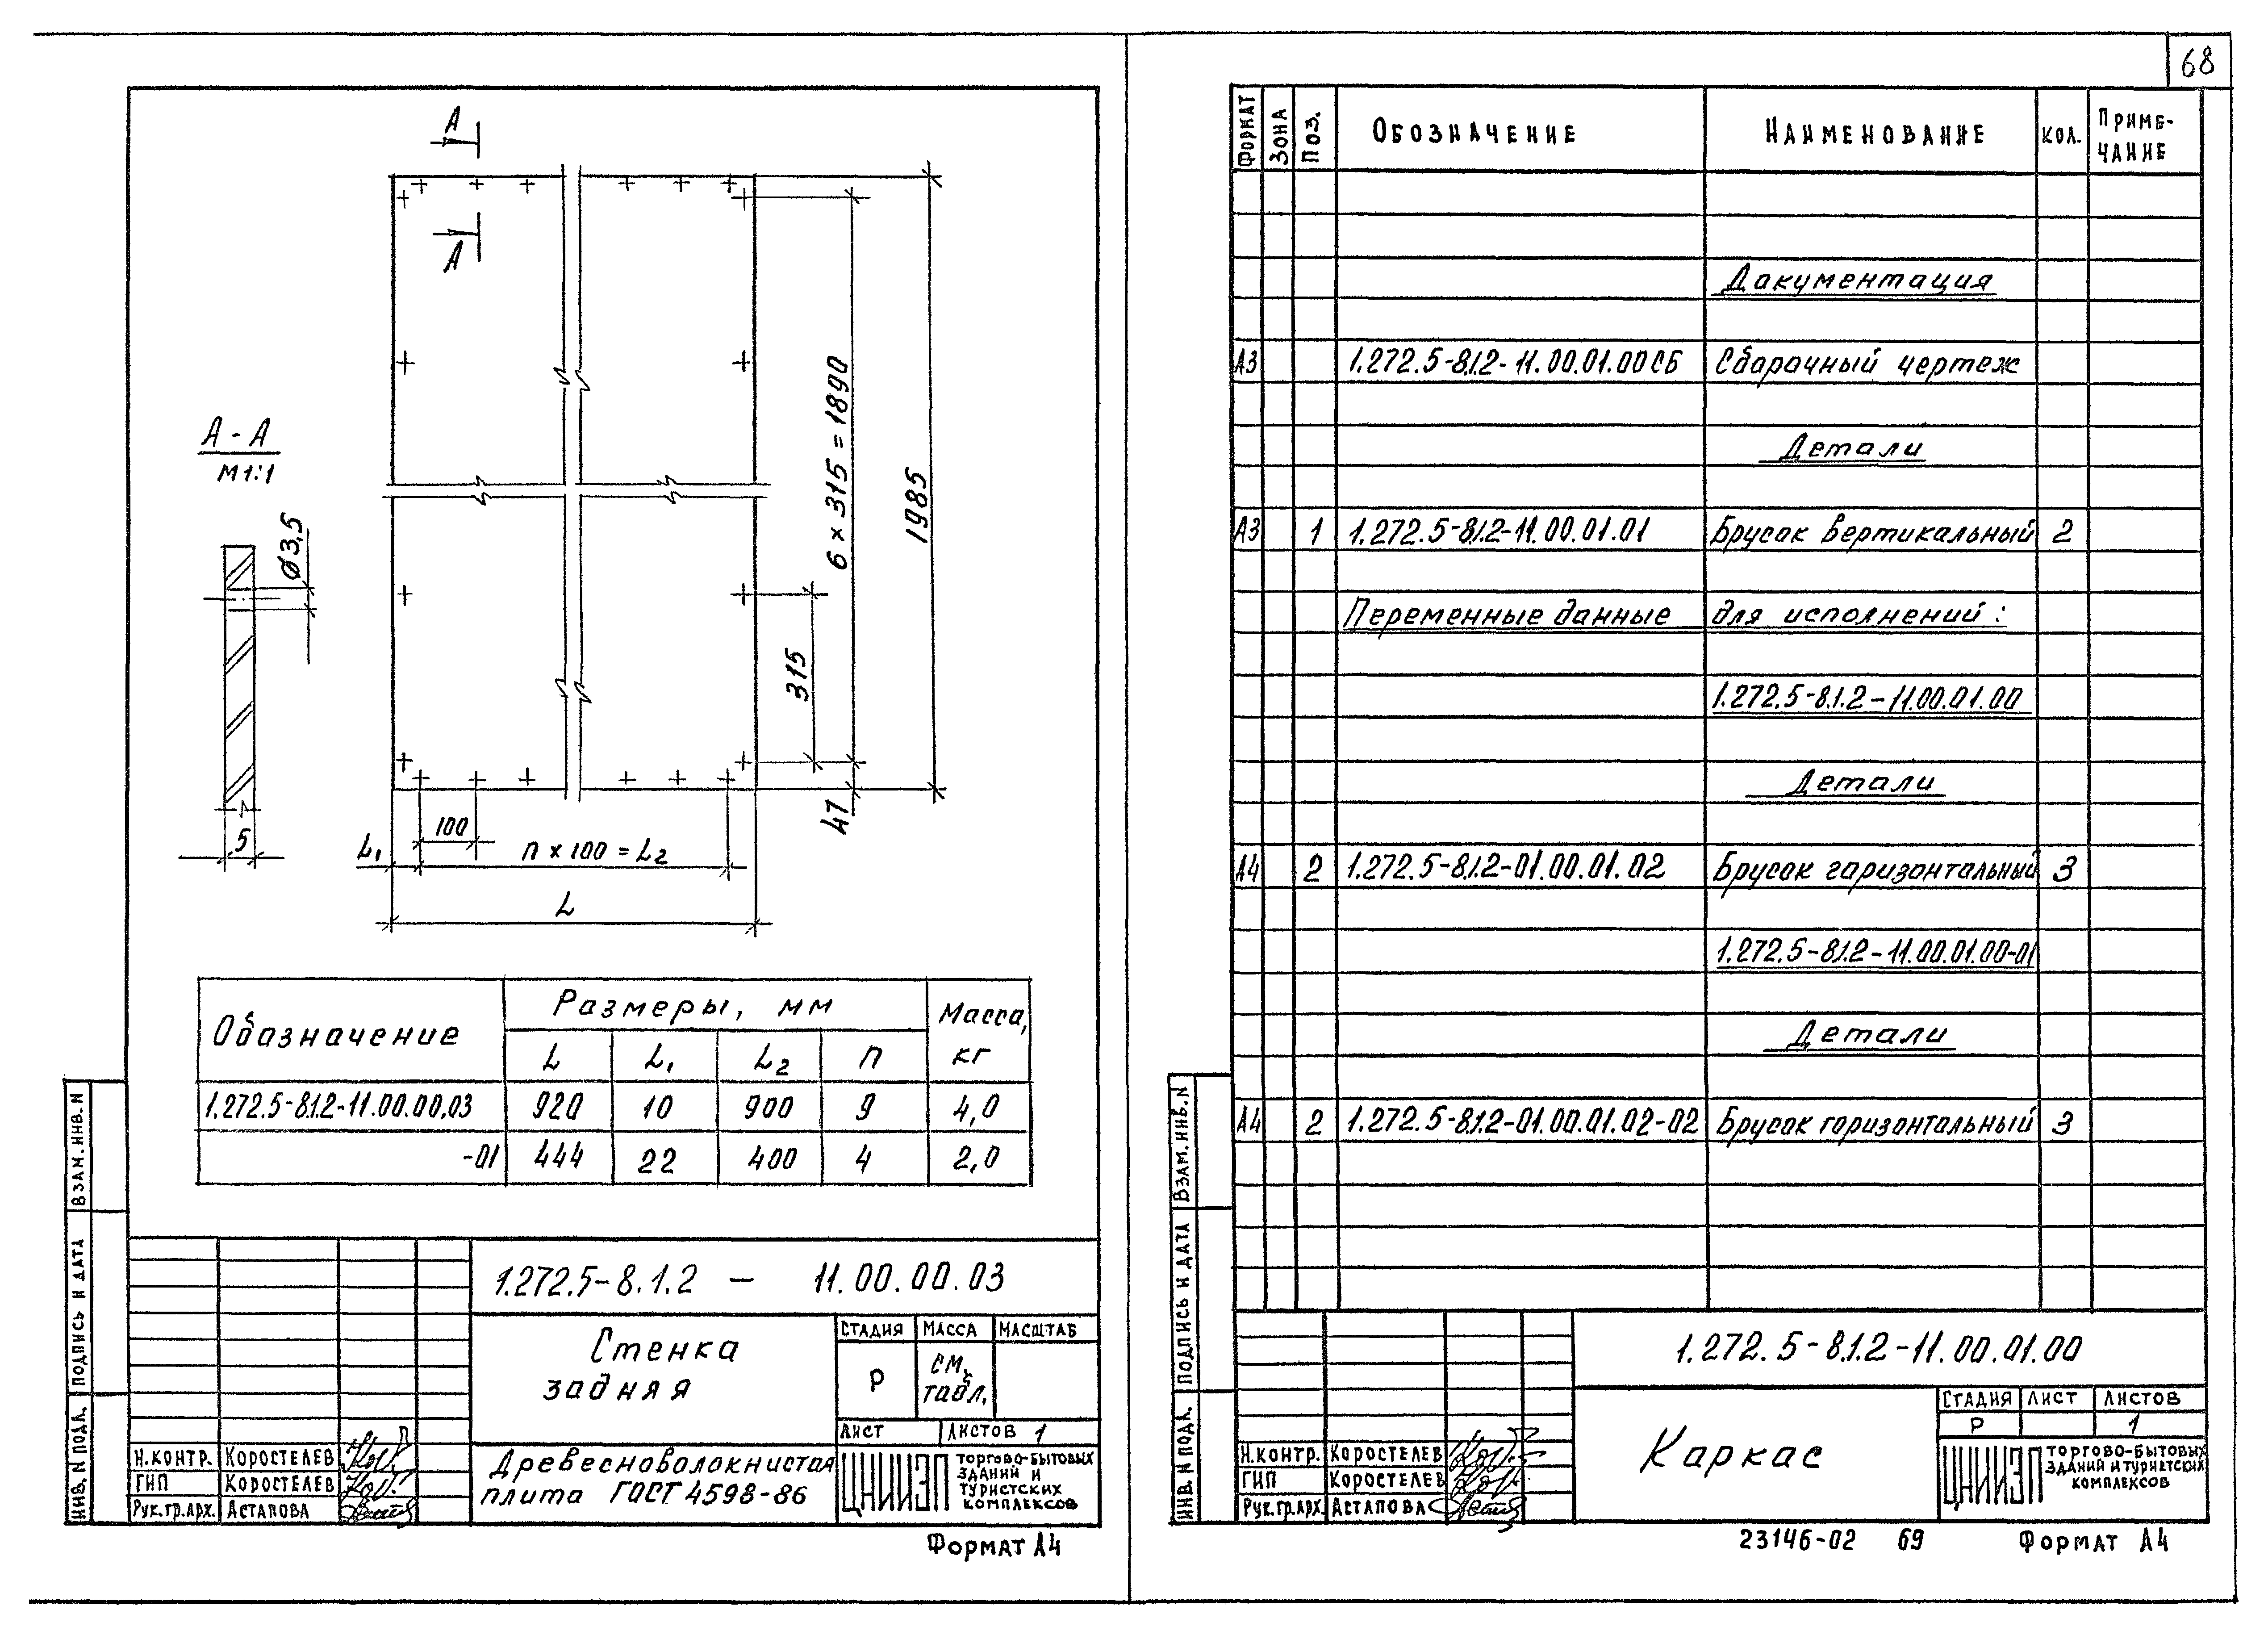 68
А
А
А - А
М1:1
Ø3,5
5
6 × 315 = 1890
1985
315
47
100
L₁
n × 100 = L₂
L
Обозначение
Размеры, мм
Масса, кг
L
L₁
L₂
n
1.272.5-8.1.2-11.00.00.03 920 10 900 9 4,0
-01 444 22 400 4 2,0
1.272.5-8.1.2 - 11.00.00.03
Стенка
задняя
СТАДИЯ МАССА МАСШТАБ
Р
СМ.
табл.
ЛИСТ ЛИСТОВ 1
Древесноволокнистая
плита ГОСТ 4598-86
ЦНИИЭП
ТОРГОВО-БЫТОВЫХ
ЗДАНИЙ И
ТУРИСТСКИХ
КОМПЛЕКСОВ
Н.КОНТР. КОРОСТЕЛЕВ
ГИП КОРОСТЕЛЕВ
РУК.ГР.АРХ. АСТАПОВА
ИНВ. N ПОДЛ. ПОДПИСЬ И ДАТА ВЗАМ.ИНВ.N
ФОРМАТ А4
ФОРМАТ ЗОНА ПОЗ. ОБОЗНАЧЕНИЕ НАИМЕНОВАНИЕ КОЛ. ПРИМЕ-
ЧАНИЕ
Документация
А3 1.272.5-8.1.2-11.00.01.00СБ Сборочный чертеж
Детали
А3 1 1.272.5-8.1.2-11.00.01.01 Брусок вертикальный 2
Переменные данные для исполнений:
1.272.5-8.1.2-11.00.01.00
Детали
А4 2 1.272.5-8.1.2-01.00.01.02 Брусок горизонтальный 3
1.272.5-8.1.2-11.00.01.00-01
Детали
А4 2 1.272.5-8.1.2-01.00.01.02-02 Брусок горизонтальный 3
1.272.5-8.1.2-11.00.01.00
Каркас
СТАДИЯ ЛИСТ ЛИСТОВ
Р 1
ЦНИИЭП
ТОРГОВО-БЫТОВЫХ
ЗДАНИЙ И ТУРИСТСКИХ
КОМПЛЕКСОВ
Н.КОНТР. КОРОСТЕЛЕВ
ГИП КОРОСТЕЛЕВ
РУК.ГР.АРХ. АСТАПОВА
ИНВ. N ПОДЛ. ПОДПИСЬ И ДАТА ВЗАМ.ИНВ.N
23146-02 69 ФОРМАТ А4